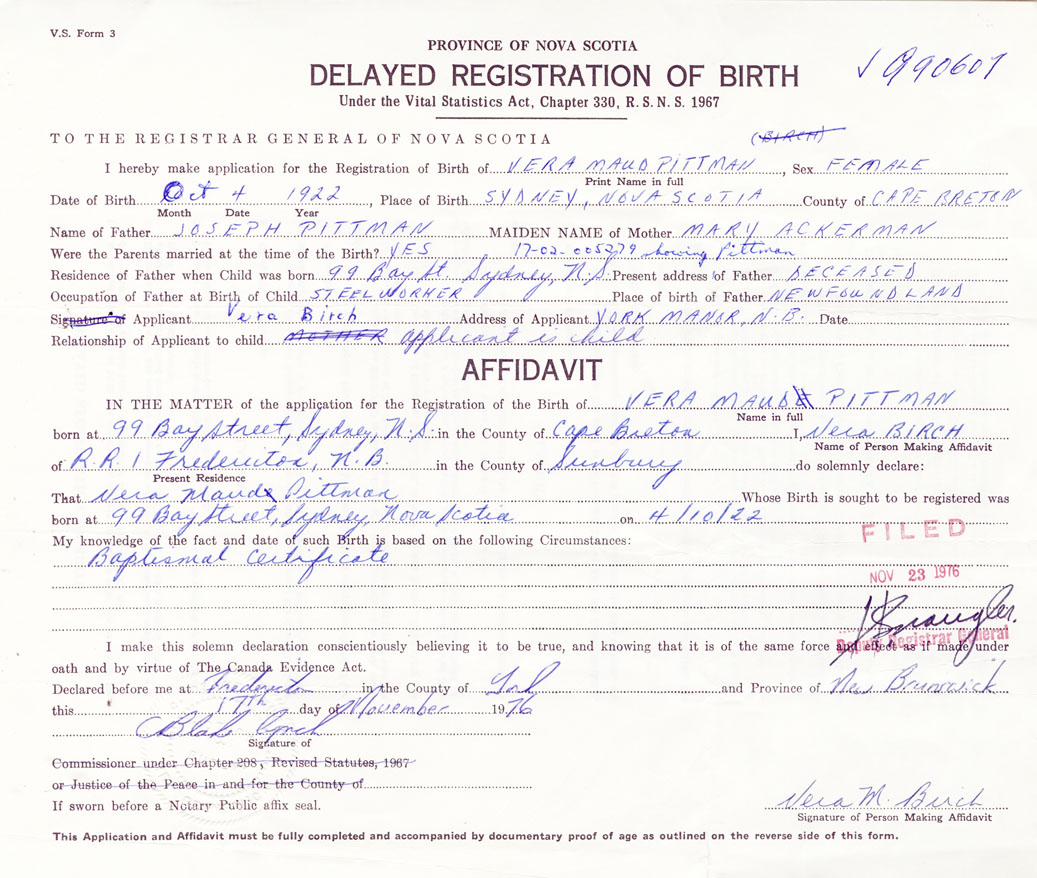 V.S. Form 3
PROVINCE OF NOVA SCOTIA
DELAYED REGISTRATION OF BIRTH
Under the Vital Statistics Act, Chapter 330, R. S. N. S. 1967
990607
TO THE REGISTRAR GENERAL OF NOVA SCOTIA
(BIRCH)
I hereby make application for the Registration of Birth of VERA MAUD PITTMAN, Sex FEMALE
Print Name in full
Date of Birth Oct 4 1922, Place of Birth SYDNEY, NOVA SCOTIA County of CAPE BRETON
Month Date Year
Name of Father JOSEPH PITTMAN MAIDEN NAME of Mother MARY ACKERMAN
Were the Parents married at the time of the Birth? YES 17-02-005279 showing Pittman
Residence of Father when Child was born 99 Bay St. Sydney, N.S. Present address of Father DECEASED
Occupation of Father at Birth of Child STEELWORHER Place of birth of Father NEWFOUNDLAND
Signature of Applicant Vera Birch Address of Applicant YORK MANOR, N.B. Date
Relationship of Applicant to child MOTHER applicant is child
AFFIDAVIT
IN THE MATTER of the application for the Registration of the Birth of VERA MAUD PITTMAN
Name in full
born at 99 Bay Street, Sydney, N.S. in the County of Cape Breton I, Vera BIRCH
Name of Person Making Affidavit
of R.R. 1 Fredericton, N.B. in the County of Sunbury do solemnly declare:
Present Residence
That Vera Maud Pittman Whose Birth is sought to be registered was
born at 99 Bay Street, Sydney, Nova Scotia on 4/10/22
FILED
My knowledge of the fact and date of such Birth is based on the following Circumstances:
Baptismal Certificate
NOV 23 1976
Deputy Registrar General
I make this solemn declaration conscientiously believing it to be true, and knowing that it is of the same force and effect as if made under
oath and by virtue of The Canada Evidence Act.
Declared before me at Fredericton in the County of York and Province of New Brunswick
this 17th day of November 1976
Signature of
Commissioner under Chapter 208, Revised Statutes, 1967
or Justice of the Peace in and for the County of
If sworn before a Notary Public affix seal.
Vera M. Birch
Signature of Person Making Affidavit
This Application and Affidavit must be fully completed and accompanied by documentary proof of age as outlined on the reverse side of this form.